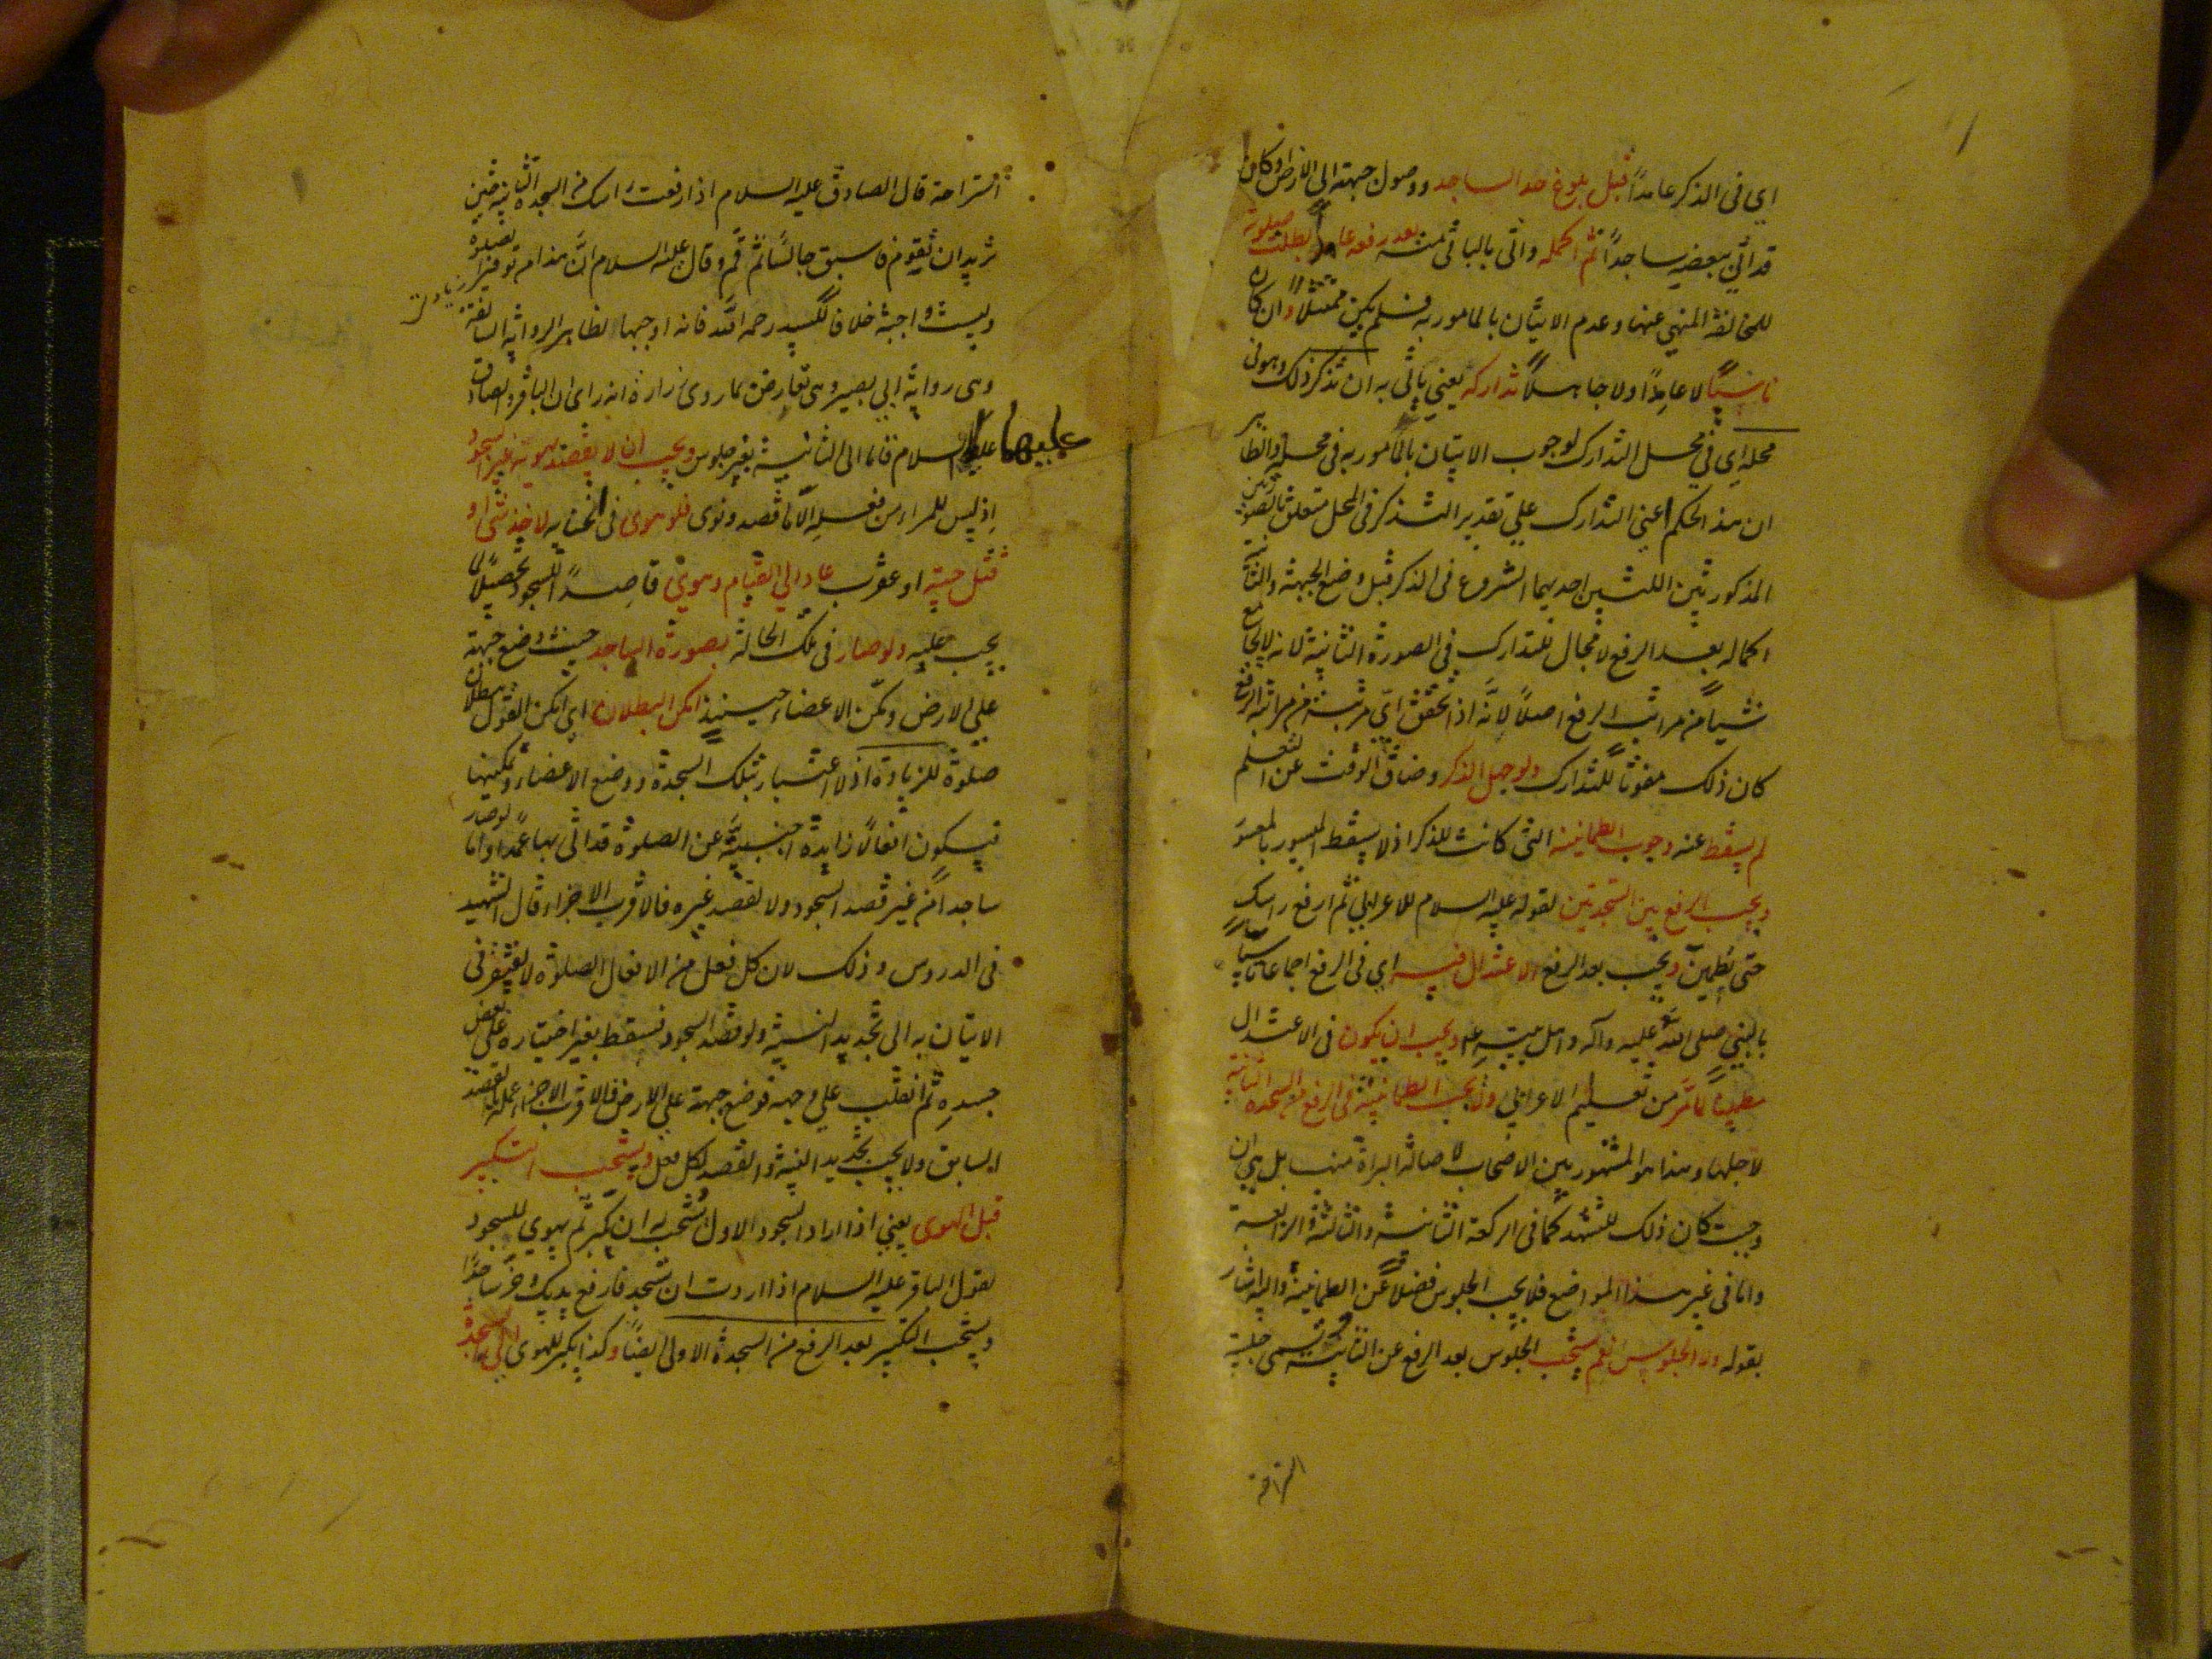 اي في الذكر عامداً قبل بلوغ حد الساجد ووصول جبهته الى الارض او كان
قد اتى ببعضه ساجداً ثم اكمله واتى بالباقي منه بعد رفعه عامداً بطلت صلوته
للمخالفة المنهي عنها وعدم الاتيان بالمامور به فلم يكن ممتثلاً وان كان
ناسياً لا عامداً ولا جاهلاً تداركه يعني ياتي به ان تذكر ذلك وهو في
محله اي في محل التدارك لوجوب الاتيان بالمامور به في محله والظاهر
ان هذا الحكم اعني التدارك على تقدير التذكر في المحل متعلق بالصورتين
المذكورتين اللتين احديهما الشروع في الذكر قبل وضع الجبهة والثانية
اكماله بعد الرفع لا مجال للتدارك في الصورة الثانية لانه لا يجامع
شيئا من مراتب الرفع اصلاً لانّه اذا تحقق اي مرتبة من مراتب الرفع
كان ذلك مفوتاً للتدارك ولو جهل الذكر وضاق الوقت عن التعلم
لم يسقط عنه وجوب الطمانينة التي كانت للذكر اذ لا يسقط الميسور بالمعسور
ويجب الرفع بين السجدتين لقوله عليه السلام للاعرابي ثم ارفع راسك
حتى تطمئن ويجب بعد الرفع الاعتدال فيه اي في الرفع اجماعا تاسياً
بالنبي صلى الله عليه وآله واهل بيته ع ويجب ان يكون في الاعتدال
مطمئناً لما مر من تعليم الاعرابي ولا يجب الطمانينة في الرفع من السجدة الثانية
لاجلها وهذا هو المشهور بين الاصحاب لاصالة البراءة منها بل ان
وجبت كان ذلك للتشهد كما في الركعة الثانية والثالثة والرابعة
واما في غير هذا المواضع فلا يجب الجلوس فضلاً عن الطمانينة واليه اشار
بقوله ولا الجلوس نعم يستحب الجلوس بعد الرفع عن الثانية وتسمى جلسة
استراحة قال الصادق عليه السلام اذا رفعت راسك من السجدة الثانية حين
تريد ان تقوم فاسبق جالساً ثم قم وقال عليه السلام انّ هذا من توقير الصلوة
وليست واجبة خلافا للسيد رحمه الله فانه اوجبها لظاهر الرواية السالفة
وهي رواية ابي بصير وهي تعارض بما روى زرارة انه راى ان الباقر والصادق
عليهما السلام قاما الى الثانية بغير جلوس ويجب ان لا يقصد بهويه غير السجود
اذ ليس للمرء من فعله الّا ما قصد ونوى فلو هوى في انحنائه لاخذ شئ او
قتل حية او عقرب عاد الى القيام وهوى قاصداً للسجود تحصيلاً لما
يجب عليه ولو صار في تلك الحالة بصورة الساجد حيث وضع جبهته
على الارض ومكّن الاعضاء حينئذ امكن البطلان اي امكن القول ببطلان
صلوة للزيادة اذ لا اعتبار بتلك السجدة ووضع الاعضاء وتمكينها
فيكون افعالاً زايدة اجنبية عن الصلوة قد اتى بها عمداً واما لو صار
ساجداً من غير قصد السجود ولا لقصد غيره فالاقرب الاجزاء قال الشهيد
في الدروس وذلك لان كل فعل من الافعال الصلوة لا يفتقر في
الاتيان به الى تجديد النية ولو قصد السجود فسقط بغير اختياره على بعض
جسده ثم انقلب على وجهه فوضع جبهته على الارض فالاقرب الاجزاء عملا بالقصد
السابق ولا يجب تجديد النية والقصد لكل فعل ويستحب التكبير
قبل الهوى يعني اذا اراد السجود الاول استحب له ان كبّر ثم يهوي للسجود
لقول الباقر عليه السلام اذا اردت ان تسجد فارفع يديك وخر ساجداً
ويستحب التكبير بعد الرفع من السجدة الاولى ايضاً وكذا يكبر للهوي الى السجدة